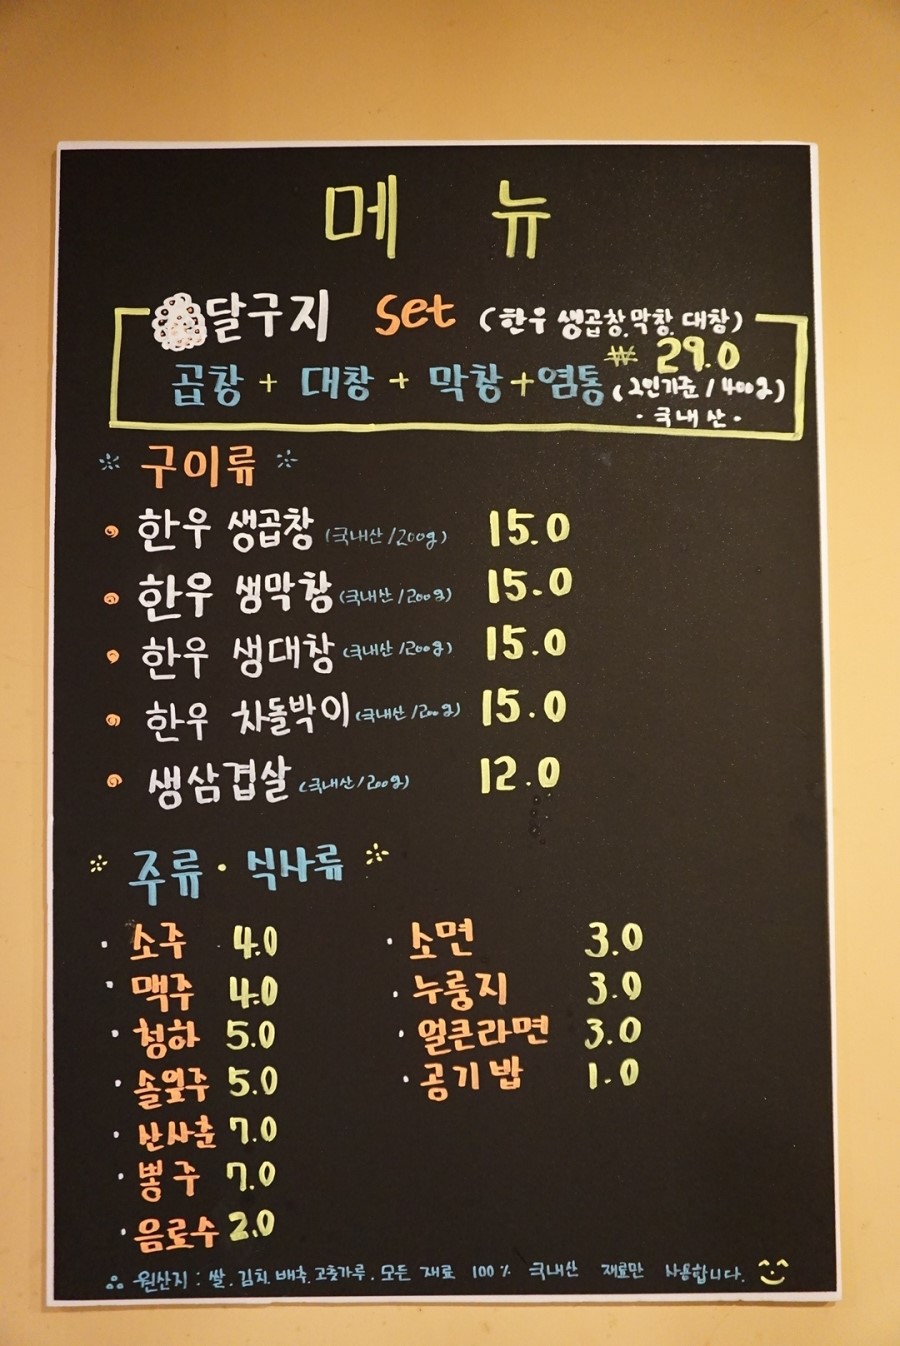 메뉴
달구지 Set (한우 생곱창 막창 대창)
₩ 29.0
곱창 + 대창 + 막창 + 염통 (2인기준 / 400g)
· 국내산 ·
구이류
한우 생곱창 (국내산 / 200g) 15.0
한우 생막창 (국내산 / 200g) 15.0
한우 생대창 (국내산 / 200g) 15.0
한우 차돌박이 (국내산 / 200g) 15.0
생삼겹살 (국내산 / 200g) 12.0
주류 · 식사류
· 소주 4.0
· 맥주 4.0
· 청하 5.0
· 솔잎주 5.0
· 산사춘 7.0
· 뽕주 7.0
· 음료수 2.0
· 소면 3.0
· 누룽지 3.0
· 얼큰라면 3.0
· 공기밥 1.0
원산지 : 쌀. 김치. 배추. 고춧가루. 모든 재료 100% 국내산 재료만 사용합니다.